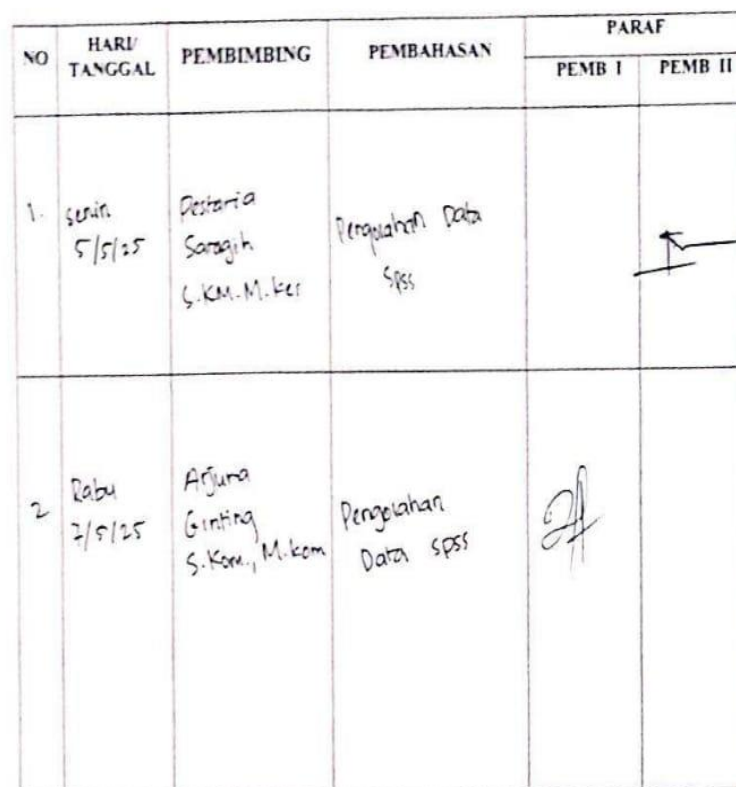 NO
HARI/
TANGGAL
PEMBIMBING
PEMBAHASAN
PARAF
PEMB I
PEMB II
1.
senin
5/5/25
Destaria
Saragih
S.KM.M.Kes
Pengolahan Data
Spss
2
Rabu
7/5/25
Arjuna
Ginting
S.Kom., M.kom
Pengolahan
Data spss